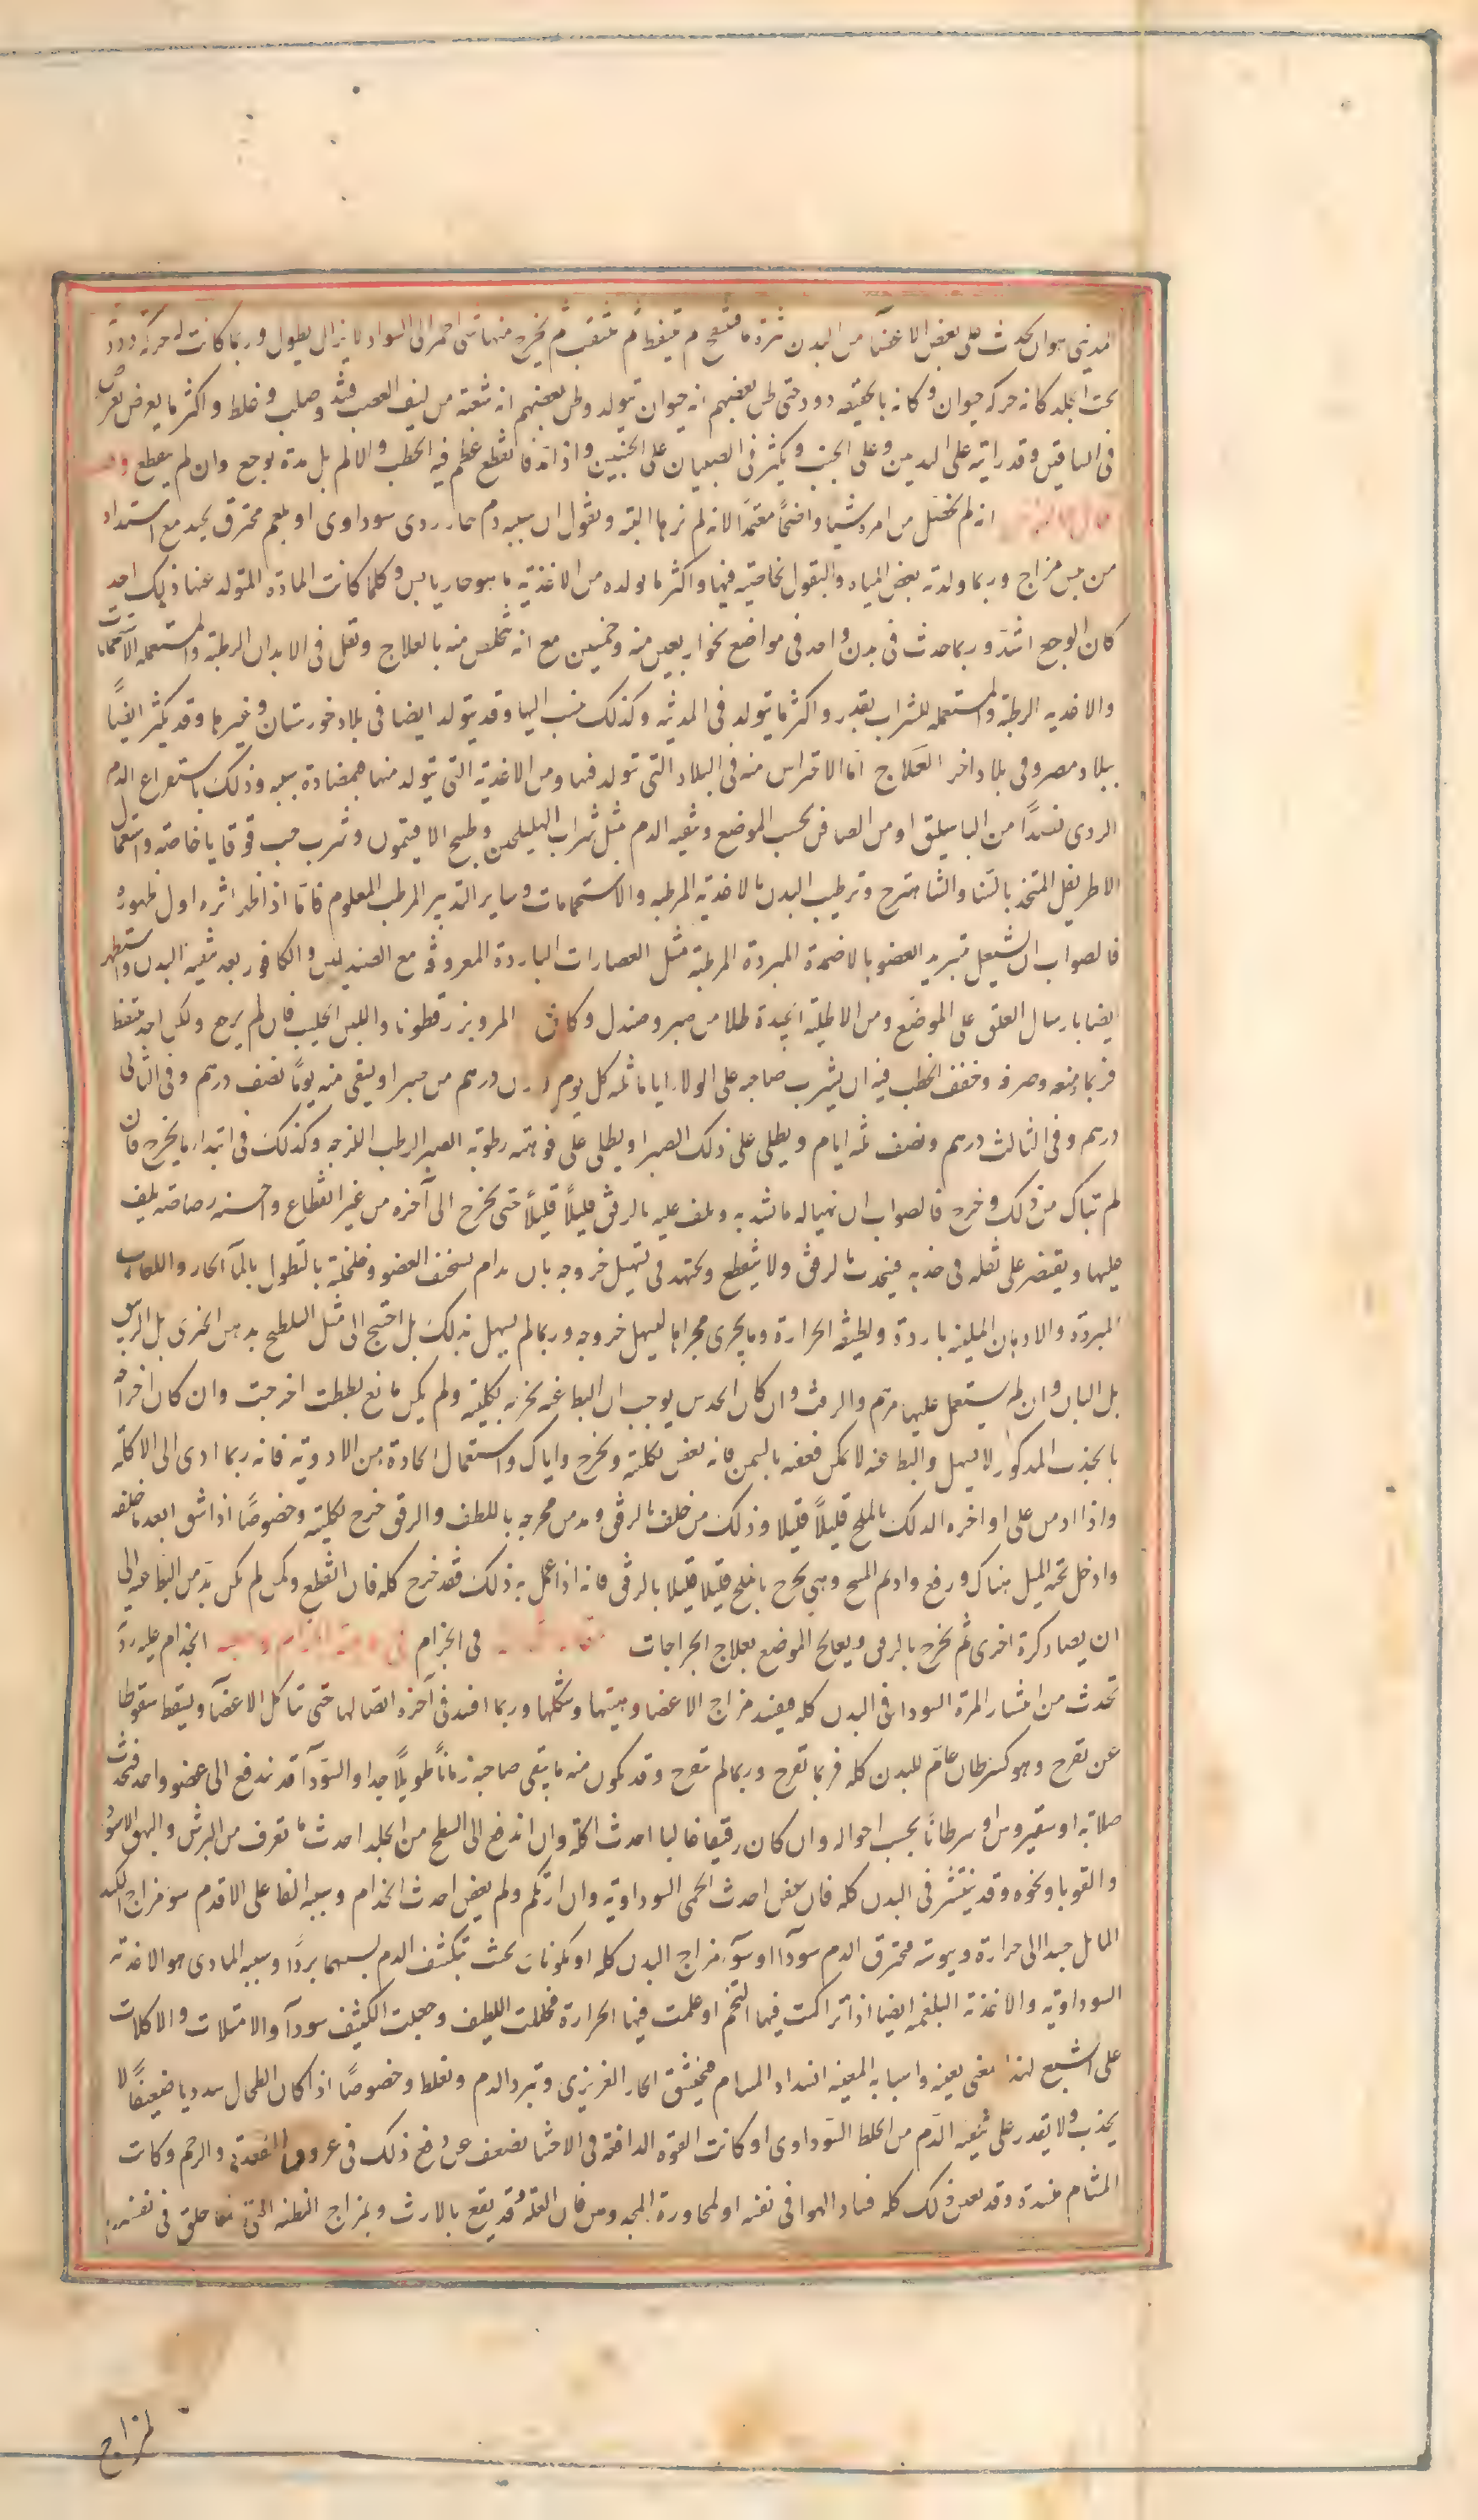 المديني هو ان يحدث على بعض الاعضآء من البدن بثرة ما فتنتفخ ثم تتنفط ثم تتثقب ثم يخرج منها شئ احمر الى السواد لا يزال يطول وربما كانت له حركة دودية
تحت الجلد كانه حركة حيوان وكانه بالحقيقه دود حتى ظن بعضهم انه حيوان يتولد وظن بعضهم انه شعبة من ليف العصب فسد وصلب وغلظ واكثر ما يعرض يعرض
فى الساقين وقد رايته على اليدين وعلى الجنب ويكثر فى الصبيان على الجنبين واذا مد فانقطع عظم فيه الخطب والالم بل مدة يوجع وان لم ينقطع
انه لم يحصل من امره شيئا واضحاً معتمداً لانه لم يرها البتة ونقول ان سببه دم حار ردى سوداوى او بلغم محترق يحتد مع اشتداد
من يبس مزاج وربما ولدته بعض المياه والبقول بخاصية فيها واكثر ما يولده من الاغذية ما هو حار يابس وكلما كانت المادة المتولد عنها ذلك احد
كان الوجع اشد وربما حدث فى بدن واحد فى مواضع نحو اربعين منه وخمسين مع انه يتخلص منه بالعلاج وتقل فى الابدان الرطبة والمستعملة الاستحمامات
والاغذيه الرطبة والمستعمله للشراب بقدر واكثر ما يتولد فى المدينه وكذلك ينسب اليها وقد يتولد ايضا فى بلاد خورستان وغيرها وقد يكثر ايضاً
ببلاد مصر وفى بلاد اخر العلاج اما الاحتراس منه فى البلاد التى تولد فيها ومن الاغذية التى يتولد منها فبمضادة سببه وذلك باستفراغ الدم
الردى فصداً من الباسليق او من الصافن بحسب الموضع وتنقيه الدم بمثل شراب الهليلجين وطبيخ الافيتمون وشرب حب قوقايا خاصته واستعمال
الاطريفل المتخذ بالسنا والشاهترج وترطيب البدن بالاغذيه المرطبه والاستحمامات وساير التدبير المرطب المعلوم فاما اذا ظهر اثره اول ظهوره
فالصواب ان يشتغل بتبريد العضو بالاضمدة المبردة المرطبة مثل العصارات الباردة المعروفة مع الصندلين والكافور بعد تنقيه البدن واستظهر
ايضا بارسال العلق على الموضع ومن الاطلية الجيدة طلا من صبر وصندل وكافور المر وبزرقطونا واللبن الحليب فان لم يرجع ولكن اخذ يتنفط
فربما منعه وصرفه وخفف الخطب فيه ان يشرب صاحبه على الولاء اياما ثلثه كل يوم وزن درهم من صبر او يسقى منه يوماً نصف درهم وفى الثانى
درهم وفى الثالث درهم ونصف ثلثه ايام ويطلى على ذلك الصبر او يطلى على فوهته رطوبة الصبر الرطب اللزجه وكذلك فى ابتداء ما يخرج فان
لم تبال من ذلك وخرج فالصواب ان يهيا له ما يشد به ويلف عليه بالرفق قليلاً قليلاً حتى يخرج الى آخره من غير انقطاع واحسنه رصاصة يلف
عليها ويقتصر على ثقله فى جذبه فينجذب بالرفق ولا ينقطع ويجتهد فى تسهيل خروجه بان يدام تسخيف العضو وتخلخله بالنطول بالمآء الحار واللعاب
المبردة والادهان المليئه باردة ولطيفه الحرارة وما يجرى مجراها ليسهل خروجه وربما لم يسهل بذلك بل احتيج الى مثل التلطيخ بدهن الخيرى بل الزنبق
بل البان وان لم يستعمل عليها مرهم والزفت وان كان الحدس يوجب ان البط عنه يخرجه بكليته ولم يكن مانع بططت اخرجت وان كان اخراجه
بالجذب المذكور لا يسهل والبط عنه لا يمكن فعفنه بالسمن فانه يعفن بكليته ويخرج واياك واستعمال الحادة من الادوية فانه ربما ادى الى الاكلة
واذا ادمن على اواخره الدلك بالملح قليلاً قليلا وذلك من خلف بالرفق ومد من مخرجه باللطف والرفق خرج بكليته وخصوصاً اذا شق ابعد ما خلفه
وادخل تحته الميل هناك ورفع وادم المسح وهى تخرج بالملح قليلا قليلا بالرفق فانه اذا عمل به ذلك فقد خرج كله فان انقطع وكمن لم يكن بد من البط عنه الى
ان يصاد كرة اخرى ثم يخرج بالرفق ويعالج الموضع بعلاج الجراحات فى الجزام الجذام علة رديّة
تحدث من انتشار المرة السودا فى البدن كله فيفسد مزاج الاعضا وهيئتها وشكلها وربما افسد فى آخره اتصالها حتى تتآكل الاعضآء ويسقط سقوطا
عن تقرح وهو كسرطان عام للبدن كله فربما تقرح وربما لم يتقرح وقد يكون منه ما يبقى صاحبه زماناً طويلاً جدا والسودآء قد تندفع الى عضو واحد فتحدث
صلابة او سقيروس او سرطاناً بحسب احواله وان كان رقيقا غاليا احدث اكلة وان اندفع الى السطح من الجلد احدث ما تعرف من البرش والبهق الاسود
والقوبا ونحوه وقد ينتشر فى البدن كله فان عفن احدث الحمى السوداويه وان ارتكم ولم يعفن احدث الجذام وسببه الفاعلى الاقدم سؤ مزاج الكبد
المايل جدا الى حرارة ويبوسة فيحترق الدم سودآء او سوء مزاج البدن كله او يكونان بحيث يكثف الدم بسببهما برداً وسببه المادى هو الاغذية
السوداويه والاغذية البلغميه ايضا اذا تراكمت فيها التخم او عملت فيها الحرارة فحللت اللطيف وجعلت الكثيف سودآء والامتلات والاكلات
على الشبع لهذا المعنى بعينه واسبابه المعينه انسداد المسام فيختنق الحار الغريزى ويبرد الدم ويغلظ وخصوصاً اذا كان الطحال سدديا ضعيفاً لا
يجذب ولا يقدر على تنقيه الدم من الخلط السوداوى او كانت القوة الدافعة فى الاحشا تضعف عن دفع ذلك فى عروق المقعدة والرحم وكانت
المسام منسدة وقد يعين ذلك كله فساد الهوا فى نفسه او لمجاورة المجذومين فان العلة وقد يقع بالارث وبمزاج النطفه التى منها خلق فى نفسه
لمزاج